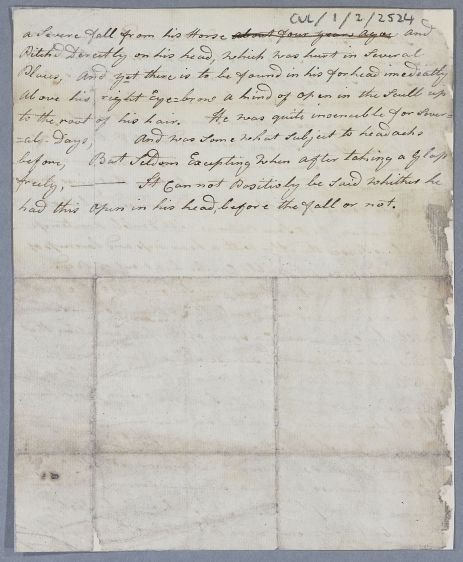 CUL/1/2/2524
a Severe fall from his Horse about four years agoe and
Pitch'd Directly on his head, which was hurt in Several
Places, And yet there is to be found in his forhead imedeatly
above his right Eye=brow a kind of open in the Scull up
to the root of his hair. He was quite insencible for Sever=
=al Days, And was Some what Subject to head achs
before, But Seldom Excepting when after taking a Glass
freely, — It Cannot Positively be Said whither he
had this open in his head, before the fall or not.